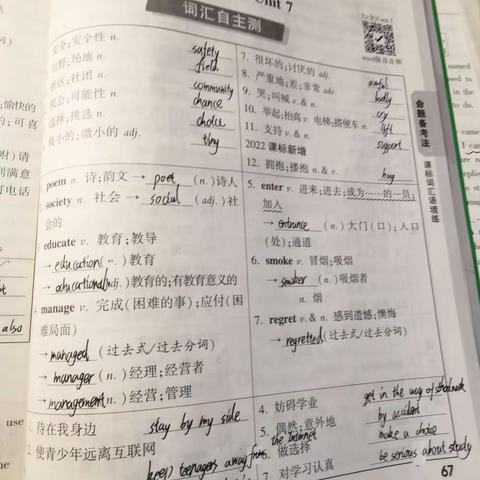 Unit 7
词汇自主测
word版及音频
安全;安全性 n. safety
田野;场地 n. field
社区;社团 n. community
机会;可能性 n. chance
选择;挑选 n. choice
极小的;微小的 adj. tiny
poem n. 诗;韵文→ poet (n.)诗人
society n. 社会 → social (adj.)社会的
educate v. 教育;教导
→ education (n.) 教育
→ educational (adj.)教育的;有教育意义的
manage v. 完成(困难的事);应付(困难局面)
→ managed (过去式/过去分词)
→ manager (n.)经理;经营者
→ management (n.)经营;管理
1. 待在我身边 stay by my side
2. 使青少年远离互联网 keep teenagers away from the Internet
7. 很坏的;讨厌的 adj. awful
8. 严重地;差;非常 adv. badly
9. 哭;叫喊 v. & n. cry
10. 举起;抬高 v. 电梯;搭便车 n. lift
11. 支持 v. & n. support
2022 课标新增
12. 拥抱;搂抱 n. & v. hug
5. enter v. 进来;进去;成为……的一员;
加入
→ entrance (n.)大门(口);入口
(处);通道
6. smoke v. 冒烟;吸烟
→ smoker (n.)吸烟者
n. 烟
7. regret v. & n. 感到遗憾;懊悔
→ regretted (过去式/过去分词)
4. 妨碍学业 get in the way of schoolwork
5. 偶然;意外地 by accident
6. 做选择 make a choice
7. 对学习认真 be serious about study
67
命题备考法
课标词汇语境练
also
use